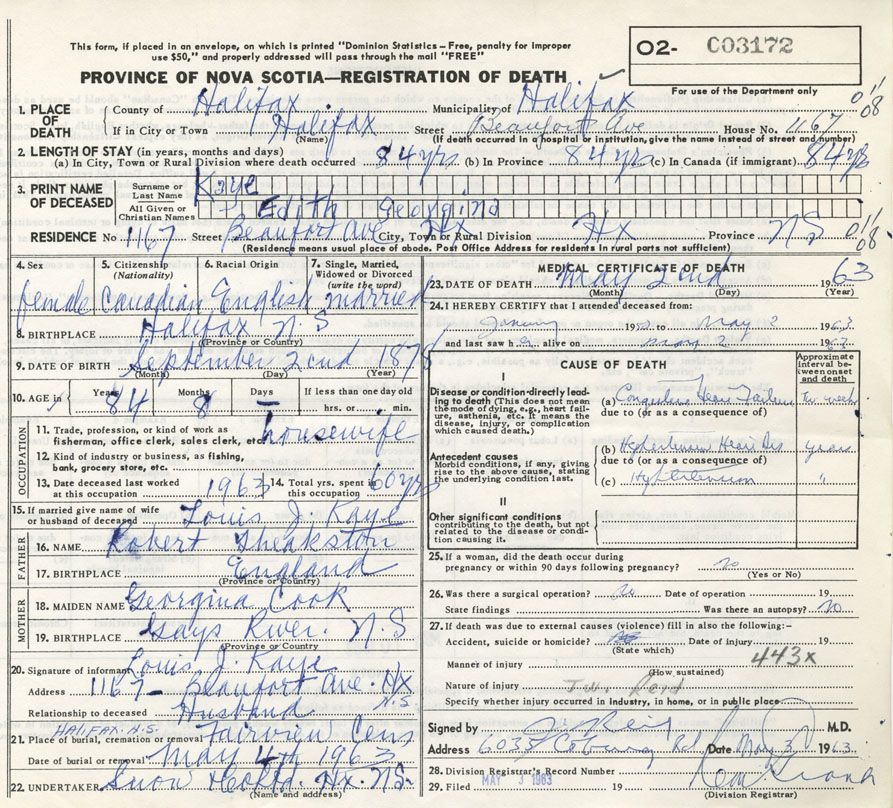 This form, if placed in an envelope, on which is printed "Dominion Statistics – Free, penalty for improper
use $50," and properly addressed will pass through the mail "FREE"
02- C03172
PROVINCE OF NOVA SCOTIA—REGISTRATION OF DEATH
For use of the Department only
1. PLACE OF DEATH
County of Halifax Municipality of Halifax
If in City or Town Halifax Street Beaufort Ave House No. 1167
(Name) (If death occurred in a hospital or institution, give the name instead of street and number)
2. LENGTH OF STAY (in years, months and days)
(a) In City, Town or Rural Division where death occurred 84 yrs (b) In Province 84 yrs (c) In Canada (if immigrant) 84 yrs
3. PRINT NAME OF DECEASED
Surname or Last Name Kaye
All Given or Christian Names Edith Georgina
RESIDENCE No. 1167 Street Beaufort Ave Hx City, Town or Rural Division Hx Province NS
(Residence means usual place of abode. Post Office Address for residents in rural parts not sufficient)
011
08
011
08
4. Sex female
5. Citizenship (Nationality) Canadian
6. Racial Origin English
7. Single, Married, Widowed or Divorced (write the word) married
8. BIRTHPLACE Halifax N.S
(Province or Country)
9. DATE OF BIRTH September 2cnd 1878
(Month) (Day) (Year)
10. AGE in Years 84 Months 8 Days –
If less than one day old
hrs. or min.
OCCUPATION
11. Trade, profession, or kind of work as
fisherman, office clerk, sales clerk, etc. housewife
12. Kind of industry or business, as fishing,
bank, grocery store, etc.
13. Date deceased last worked
at this occupation 1963
14. Total yrs. spent in
this occupation 60 yrs
15. If married give name of wife
or husband of deceased Louis J. Kaye
FATHER
16. NAME Robert Theakston
17. BIRTHPLACE England
(Province or Country)
MOTHER
18. MAIDEN NAME Georgina Cook
19. BIRTHPLACE Gays River. N.S
(Province or Country)
20. Signature of informant Louis J. Kaye
Address 1167 – Beaufort Ave. Hx N.S
Relationship to deceased Husband
HALIFAX. N.S.
21. Place of burial, cremation or removal Fairview Cem
Date of burial or removal May 4th 1963
22. UNDERTAKER Snow Co Ltd. Hx. N.S.
(Name and address)
MEDICAL CERTIFICATE OF DEATH
23. DATE OF DEATH May 2cnd 1963
(Month) (Day) (Year)
24. I HEREBY CERTIFY that I attended deceased from:
January 19 to May 2 1963
and last saw her alive on May 2 1963
CAUSE OF DEATH
Approximate interval between onset and death
I
Disease or condition directly leading to death (This does not mean the mode of dying, e.g., heart failure, asthenia, etc. It means the disease, injury, or complication which caused death.)
(a) Congestive Heart Failure
due to (or as a consequence of)
Antecedent causes
Morbid conditions, if any, giving rise to the above cause, stating the underlying condition last.
(b) Hypertensive Heart Dis years
due to (or as a consequence of)
(c) Hypertension "
II
Other significant conditions
contributing to the death, but not related to the disease or condition causing it.
25. If a woman, did the death occur during
pregnancy or within 90 days following pregnancy? no
(Yes or No)
26. Was there a surgical operation? no Date of operation 19
State findings Was there an autopsy? no
27. If death was due to external causes (violence) fill in also the following:-
Accident, suicide or homicide? Date of injury 19
(State which)
443x
Manner of injury
(How sustained)
Nature of injury J.W. Reid
Specify whether injury occurred in industry, in home, or in public place
Signed by J W Reid M.D.
Address 6035 Coburg Rd Date May 3 1963
28. Division Registrar's Record Number
MAY 3 1963
29. Filed 19
(Division Registrar)